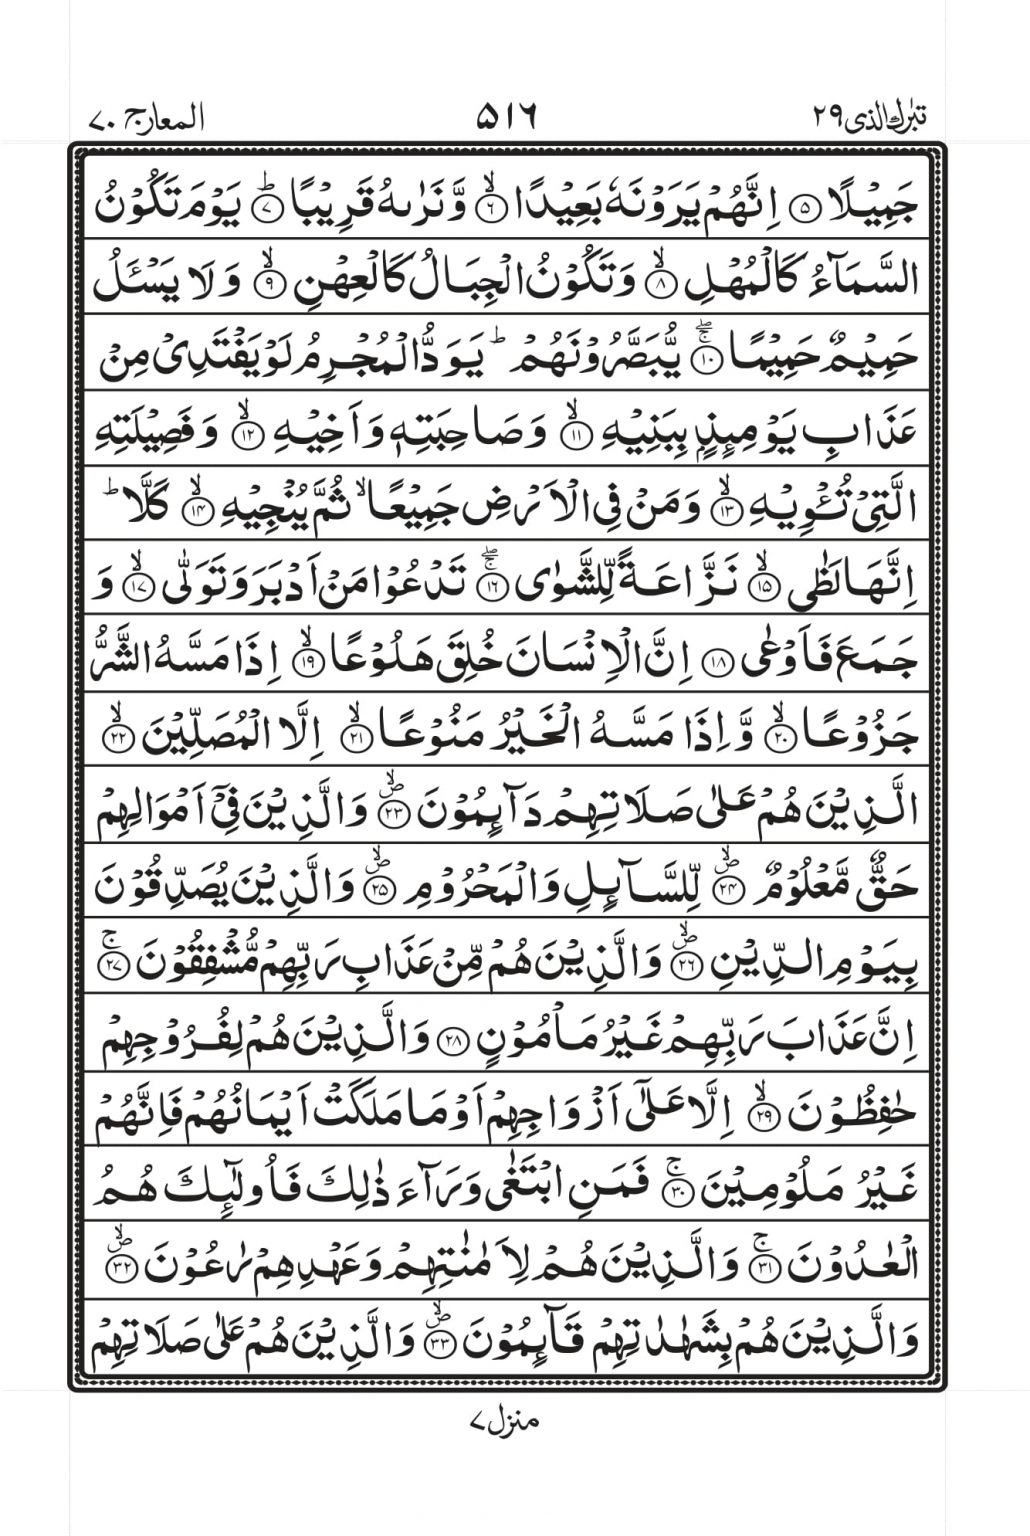 تبٰرك الذی ۲۹ ۵۱۶ المعارج ۷۰
جَمِيْلًا ۵ اِنَّهُمْ يَرَوْنَهٗ بَعِيْدًا ۙ۶ وَّنَرٰىهُ قَرِيْبًا ؕ۷ يَوْمَ تَكُوْنُ
السَّمَآءُ كَالْمُهْلِ ۙ۸ وَتَكُوْنُ الْجِبَالُ كَالْعِهْنِ ۙ۹ وَلَا يَسْـَٔلُ
حَمِيْمٌ حَمِيْمًا ۚۖ۱۰ يُّبَصَّرُوْنَهُمْ ؕ يَوَدُّ الْمُجْرِمُ لَوْ يَفْتَدِىْ مِنْ
عَذَابِ يَوْمِئِذٍۭ بِبَنِيْهِ ۙ۱۱ وَصَاحِبَتِهٖ وَاَخِيْهِ ۙ۱۲ وَفَصِيْلَتِهِ
الَّتِىْ تُـْٔوِيْهِ ۙ۱۳ وَمَنْ فِى الْاَرْضِ جَمِيْعًا ۙ ثُمَّ يُنْجِيْهِ ۙ۱۴ كَلَّا ؕ
اِنَّهَا لَظٰى ۙ۱۵ نَزَّاعَةً لِّلشَّوٰى ۚۖ۱۶ تَدْعُوْا مَنْ اَدْبَرَ وَتَوَلّٰى ۙ۱۷ وَ
جَمَعَ فَاَوْعٰى ۱۸ اِنَّ الْاِنْسَانَ خُلِقَ هَلُوْعًا ۙ۱۹ اِذَا مَسَّهُ الشَّرُّ
جَزُوْعًا ۙ۲۰ وَّاِذَا مَسَّهُ الْخَيْرُ مَنُوْعًا ۙ۲۱ اِلَّا الْمُصَلِّيْنَ ۙ۲۲
الَّذِيْنَ هُمْ عَلٰى صَلَاتِهِمْ دَآئِمُوْنَ ۪ۙ۲۳ وَالَّذِيْنَ فِىْٓ اَمْوَالِهِمْ
حَقٌّ مَّعْلُوْمٌ ۪ۙ۲۴ لِّلسَّآئِلِ وَالْمَحْرُوْمِ ۪ۙ۲۵ وَالَّذِيْنَ يُصَدِّقُوْنَ
بِيَوْمِ الدِّيْنِ ۪ۙ۲۶ وَالَّذِيْنَ هُمْ مِّنْ عَذَابِ رَبِّهِمْ مُّشْفِقُوْنَ ۚ۲۷
اِنَّ عَذَابَ رَبِّهِمْ غَيْرُ مَاْمُوْنٍ ۲۸ وَالَّذِيْنَ هُمْ لِفُرُوْجِهِمْ
حٰفِظُوْنَ ۙ۲۹ اِلَّا عَلٰٓى اَزْوَاجِهِمْ اَوْ مَا مَلَكَتْ اَيْمَانُهُمْ فَاِنَّهُمْ
غَيْرُ مَلُوْمِيْنَ ۚ۳۰ فَمَنِ ابْتَغٰى وَرَآءَ ذٰلِكَ فَاُولٰٓئِكَ هُمُ
الْعٰدُوْنَ ۚ۳۱ وَالَّذِيْنَ هُمْ لِاَمٰنٰتِهِمْ وَعَهْدِهِمْ رٰعُوْنَ ۪ۙ۳۲
وَالَّذِيْنَ هُمْ بِشَهٰدٰتِهِمْ قَآئِمُوْنَ ۪ۙ۳۳ وَالَّذِيْنَ هُمْ عَلٰى صَلَاتِهِمْ
منزل ۷